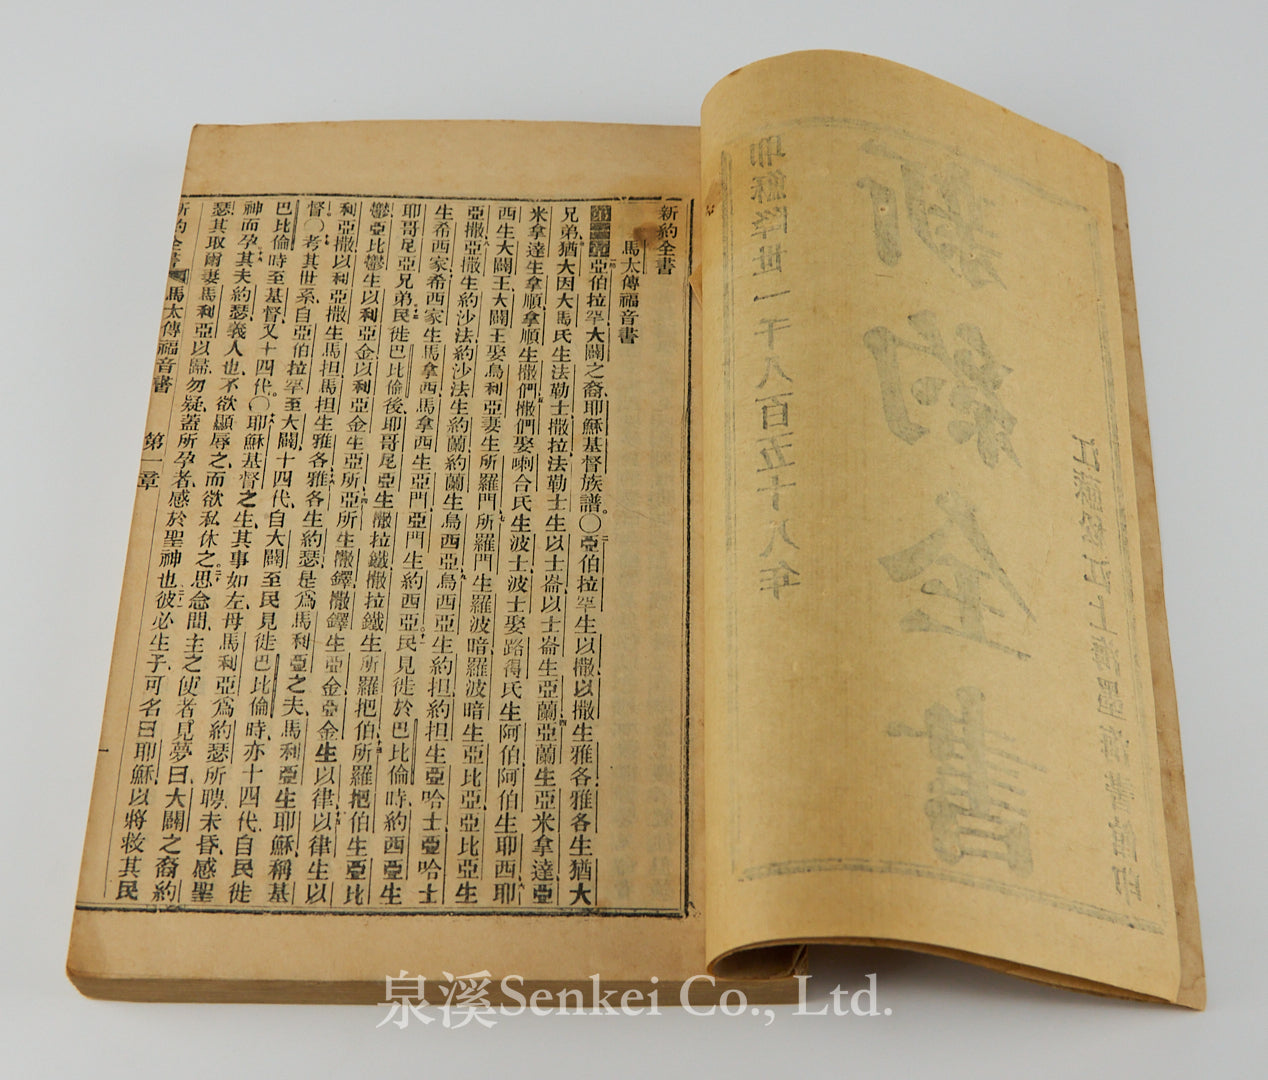 耶穌降世一千八百五十八年
新約全書
江蘇松江上海墨海書館印
新約全書
馬太傳福音書
第一章亞伯拉罕大闢之裔、耶穌基督族譜。〇亞伯拉罕生以撒、以撒生雅各、雅各生猶大
兄弟、猶大因大馬氏生法勒士撒拉、法勒士生以士崙、以士崙生亞蘭、亞蘭生亞米拿達、亞
米拿達生拿順、拿順生撒們、撒們娶喇合氏生波士、波士娶路得氏生阿伯、阿伯生耶西、耶
西生大闢王、大闢王娶烏利亞妻生所羅門、所羅門生羅波暗、羅波暗生亞比亞、亞比亞生
亞撒、亞撒生約沙法、約沙法生約蘭、約蘭生烏西亞、烏西亞生約担、約担生亞哈士、亞哈士
生希西家、希西家生馬拿西、馬拿西生亞門、亞門生約西亞。民見徙於巴比倫時、約西亞生
耶哥尼亞兄弟、民徙巴比倫後、耶哥尼亞生撒拉鐵、撒拉鐵生所羅把伯、所羅把伯生亞比
鬱、亞比鬱生以利亞金、以利亞金生亞所、亞所生撒鐸、撒鐸生亞金、亞金生以律、以律生以
利亞撒、以利亞撒生馬担、馬担生雅各、雅各生約瑟、是爲馬利亞之夫、馬利亞生耶穌、稱基
督。〇考其世系、自亞伯拉罕至大闢、十四代、自大闢至民見徙巴比倫時、亦十四代、自民徙
巴比倫時至基督、又十四代。〇耶穌基督之生、其事如左、母馬利亞爲約瑟所聘、未昏、感聖
神而孕、其夫約瑟義人也、不欲顯辱之、而欲私休之。思念間、主之使者見夢曰、大闢之裔約
瑟、其取爾妻馬利亞以歸、勿疑、蓋所孕者、感於聖神也、彼必生子、可名曰耶穌、以將救其民
新約全書 馬太傳福音書 第一章
泉溪Senkei Co., Ltd.